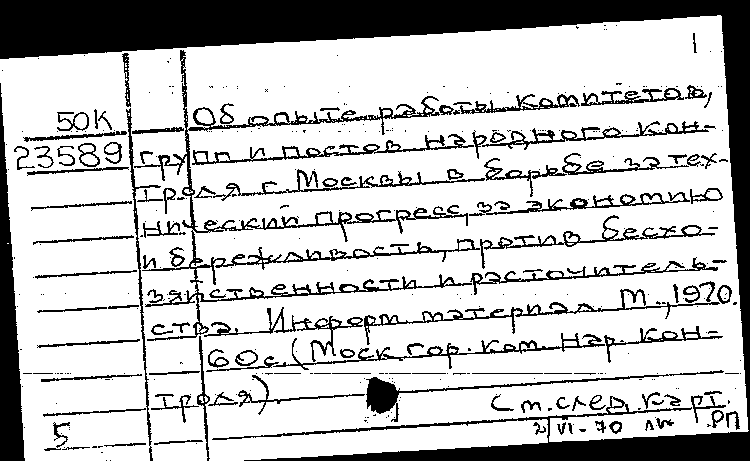 1
50К Об опыте работы комитетов,
23589 групп и постов народного кон-
троля г. Москвы в борьбе за тех-
нический прогресс, за экономию
и бережливость, против бесхо-
зяйственности и расточитель-
ства. Информ материал. М., 1970.
60с. (Моск. гор. ком. нар. кон-
троля).
См. след. карт.
5 2/VI-70 РП